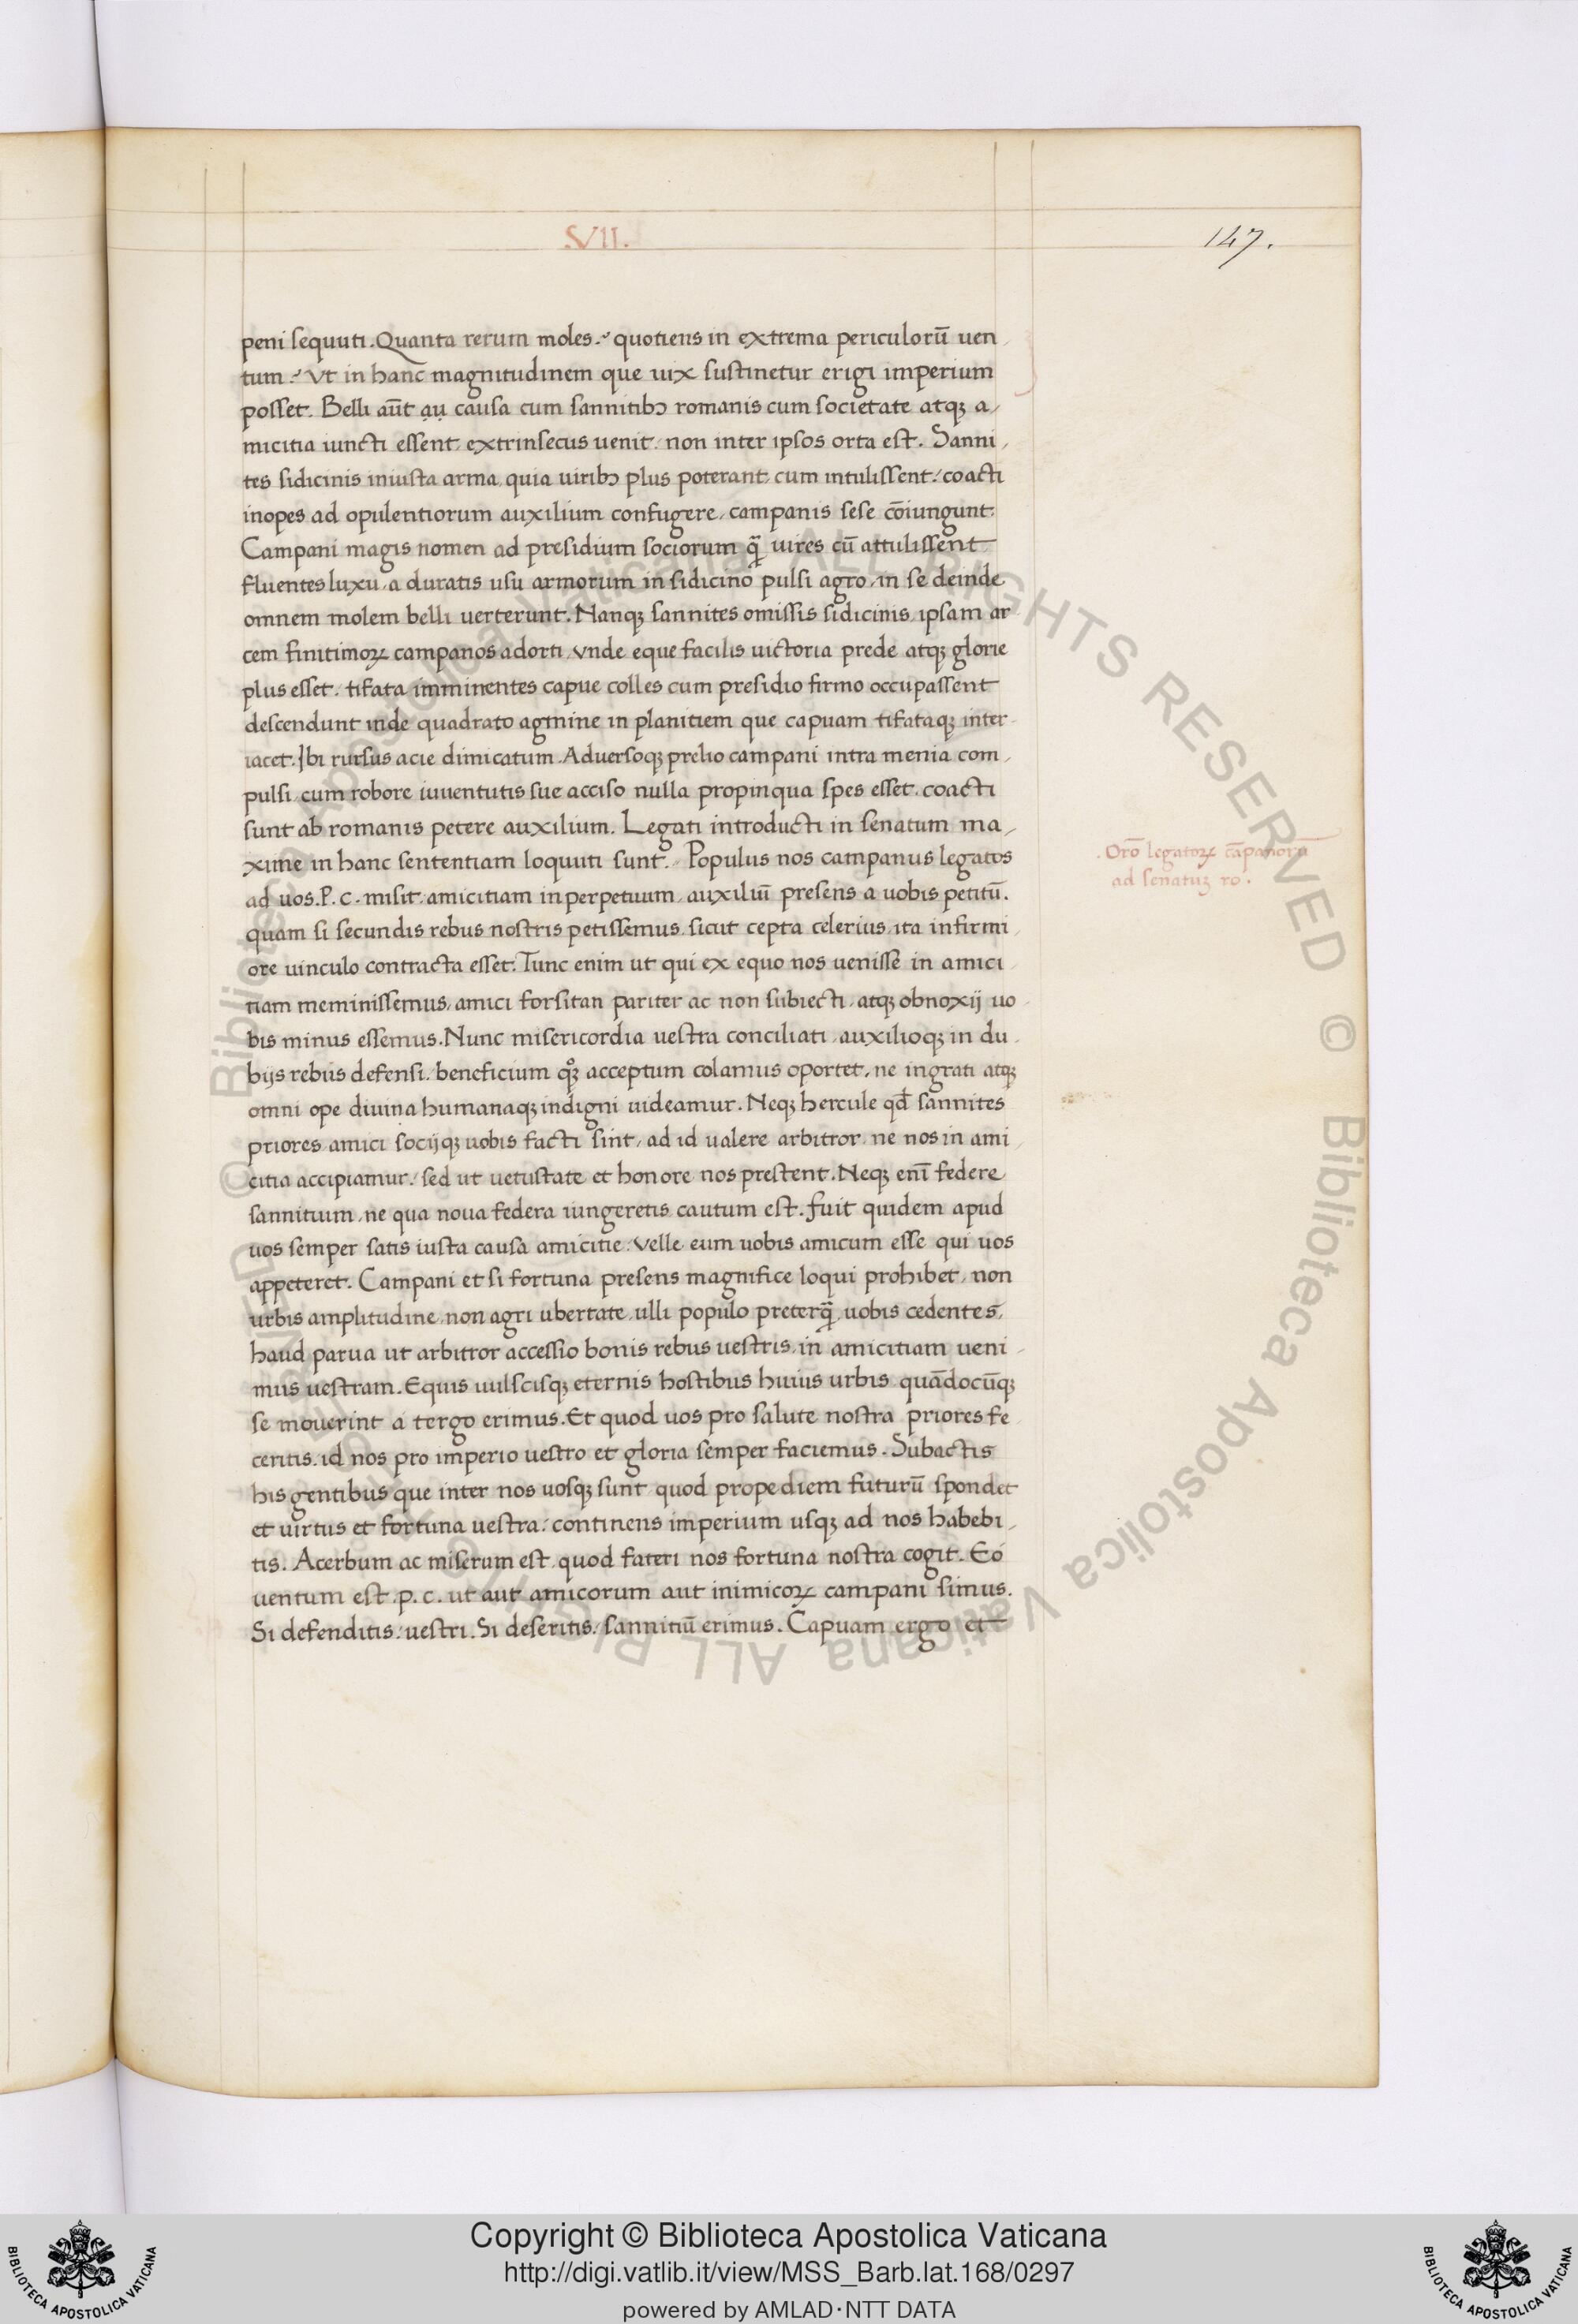 .VII.
147.
peni sequuti. Quanta rerum moles.? quotiens in extrema periculorū uen
tum.? Vt in hanc magnitudinem que uix sustinetur erigi imperium
posset. Belli aūt au causa cum sannitibꝫ romanis cum societate atqꝫ a
micitia iuncti essent, extrinsecus uenit, non inter ipsos orta est. Sanni
tes sidicinis iniusta arma, quia uiribꝫ plus poterant, cum intulissent, coacti
inopes ad opulentiorum auxilium confugere, campanis sese cōiungunt.
Campani magis nomen ad presidium sociorum qꝫ̄ uires cū attulissent
fluentes luxu, a duratis usu armorum in sidicino pulsi agro, in se deinde
omnem molem belli uerterunt. Nanqꝫ sannites omissis sidicinis ipsam ar
cem finitimoꝝ campanos adorti, vnde eque facilis uictoria prede atqꝫ glorie
plus esset. tifata imminentes capue colles cum presidio firmo occupassent
descendunt inde quadrato agmine in planitiem que capuam tifataqꝫ inter
iacet. Ibi rursus acie dimicatum. Aduersoqꝫ prelio campani intra menia com
pulsi, cum robore iuuentutis sue acciso nulla propinqua spes esset, coacti
sunt ab romanis petere auxilium. Legati introducti in senatum ma
xime in hanc sententiam loquuti sunt. Populus nos campanus legatos
ad uos. P. c. misit, amicitiam in perpetuum, auxiliū presens a uobis petitū.
quam si secundis rebus nostris petissemus, sicut cepta celerius, ita infirmi
ore uinculo contracta esset. Tunc enim ut qui ex equo nos uenisse in amici
tiam meminissemus, amici forsitan pariter ac non subiecti, atqꝫ obnoxij uo
bis minus essemus. Nunc misericordia uestra conciliati, auxilioqꝫ in du
bijs rebus defensi, beneficium qͦqꝫ acceptum colamus oportet, ne ingrati atqꝫ
omni ope diuina humanaqꝫ indigni uideamur. Neqꝫ hercule qd̄ sannites
priores amici socijqꝫ uobis facti sint, ad id ualere arbitror, ne nos in ami
citia accipiamur. sed ut uetustate et honore nos prestent. Neqꝫ enī federe
sannitium, ne qua noua federa iungeretis cautum est. fuit quidem apud
uos semper satis iusta causa amicitie. velle eum uobis amicum esse qui uos
appeteret. Campani et si fortuna presens magnifice loqui prohibet, non
urbis amplitudine, non agri ubertate, ulli populo preterqꝫ̄ uobis cedentes,
haud parua ut arbitror accessio bonis rebus uestris in amicitiam ueni
mus uestram. Equis uulscisqꝫ eternis hostibus huius urbis quādocūqꝫ
se mouerint a tergo erimus. Et quod uos pro salute nostra priores fe
ceritis. id nos pro imperio uestro et gloria semper faciemus. Subactis
his gentibus que inter nos uosqꝫ sunt, quod propediem futurū spondet
et uirtus et fortuna uestra: continens imperium usqꝫ ad nos habebi
tis. Acerbum ac miserum est quod fateri nos fortuna nostra cogit. Eo
uentum est. p. c. ut aut amicorum aut inimicoꝝ campani simus.
Si defenditis: uestri. Si deseritis: sannitiū erimus. Capuam ergo et
Orō legatoꝝ cāpanorū
ad senatuꝫ ro.
Copyright © Biblioteca Apostolica Vaticana
http://digi.vatlib.it/view/MSS_Barb.lat.168/0297
powered by AMLAD·NTT DATA
BIBLIOTECA APOSTOLICA VATICANA
BIBLIOTECA APOSTOLICA VATICANA
© Biblioteca Apostolica Vaticana ALL RIGHTS RESERVED © Biblioteca Apostolica Vaticana ALL RIGHTS RESERVED